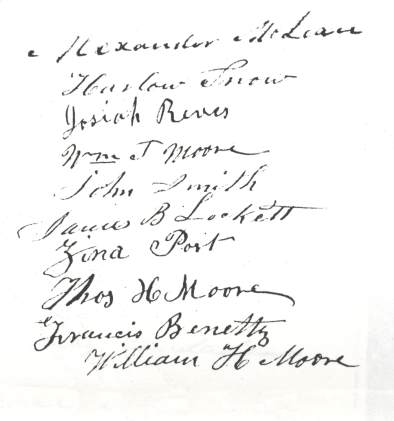 Alexander McLean
Harlow Snow
Josiah Reves
Wm J Moore
John Smith
James B Lockett
Zina Post
Thos H Moore
Francis Benetty
William H Moore